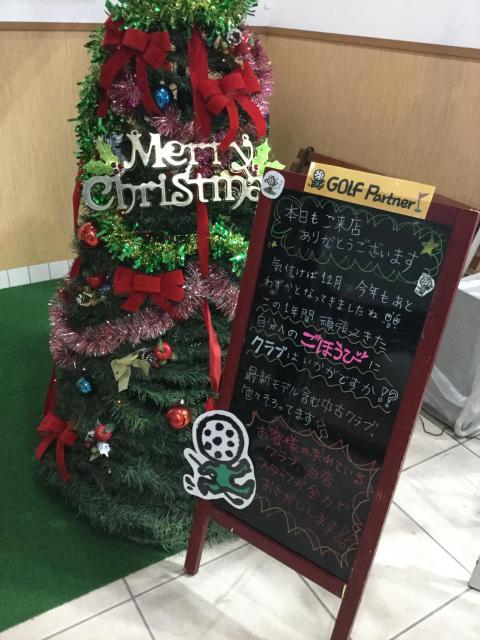 Merry
Christmas
GOLF Partner
本日もご来店
ありがとうございます
気付けば12月 今年もあと
わずかとなってきましたね
この1年間 頑張ってきた
自分への ごほうび に
クラブはいかがですか!?
最新モデル含む中古クラブ、
色々そろってます
お客様の求めている
クラブ、当店
スタッフが全力で
おさがしします!